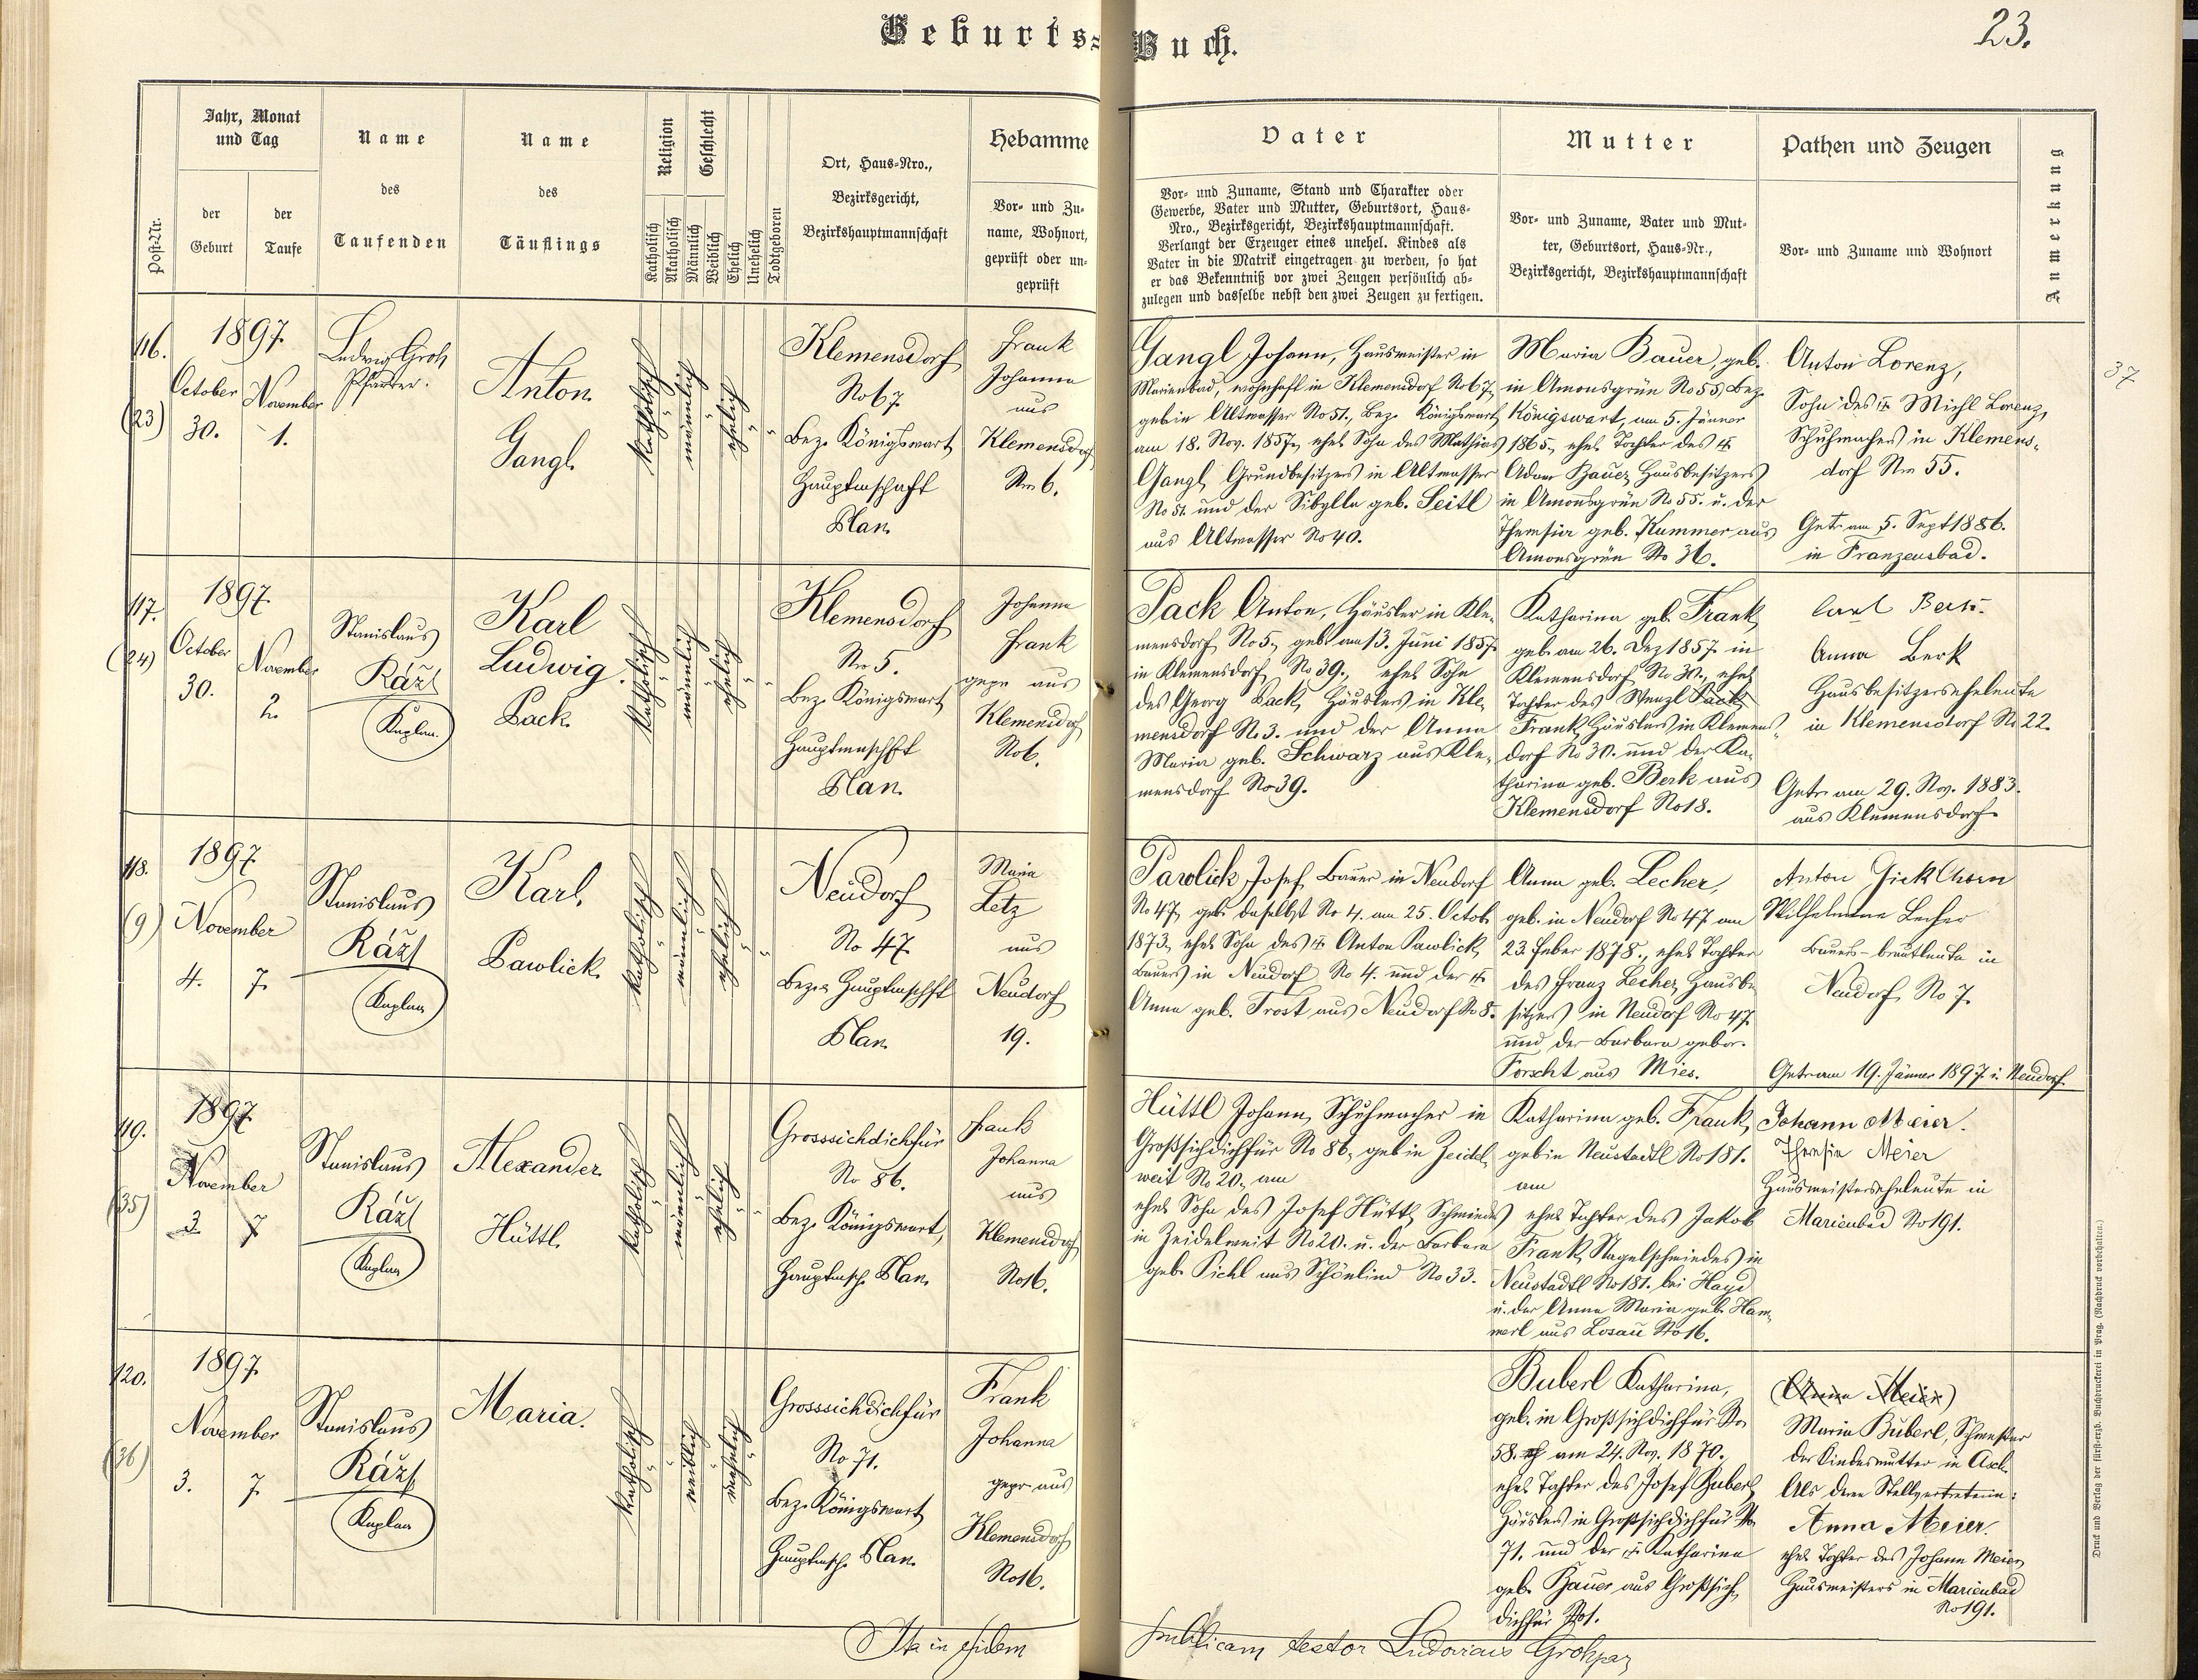 Geburts-Buch.
23.
Post-Nr.
Jahr, Monat
und Tag
der
Geburt
der
Taufe
Name
des
Taufenden
Name
des
Täuflings
Religion
Katholisch
Akatholisch
Geschlecht
Männlich
Weiblich
Ehelich
Unehelich
Todtgeboren
Ort, Haus-Nro.,
Bezirksgericht,
Bezirkshauptmannschaft
Hebamme
Vor- und Zu-
name, Wohnort,
geprüft oder un-
geprüft
Vater
Vor- und Zuname, Stand und Charakter oder
Gewerbe, Vater und Mutter, Geburtsort, Haus-
Nro., Bezirksgericht, Bezirkshauptmannschaft.
Verlangt der Erzeuger eines unehel. Kindes als
Vater in die Matrik eingetragen zu werden, so hat
er das Bekenntniß vor zwei Zeugen persönlich ab-
zulegen und dasselbe nebst den zwei Zeugen zu fertigen.
Mutter
Vor- und Zuname, Vater und Mut-
ter, Geburtsort, Haus-Nr.,
Bezirksgericht, Bezirkshauptmannschaft
Pathen und Zeugen
Vor- und Zuname und Wohnort
Anmerkung
116.
(23)
1897
October
30.
November
1.
Ludwig Groh
Pfarrer.
Anton
Gangl.
katholisch
männlich
ehelich
Klemensdorf
No 67
Bez. Königswart
Hauptmschaft
Plan.
Frank
Johanna
aus
Klemensdorf
Nro 6.
Gangl Johann, Hausmeister in
Marienbad, wohnhaft in Klemensdorf No 67,
geb. in Altwasser No 51., Bez. Königswart
am 18. Nov. 1857, ehel. Sohn des Mathias
Gangl, Grundbesitzers in Altwasser
No 51. und der Sibylla geb. Seitl
aus Altwasser No 40.
Maria Bauer, geb.
in Amonsgrün No 55, Bez.
Königswart, am 5. Jänner
1865, ehel. Tochter des †
Adam Bauer, Hausbesitzers
in Amonsgrün No 55. u. der
Theresia geb. Kummer aus
Amonsgrün No 36.
Anton Lorenz,
Sohn des † Michl Lorenz,
Schuhmachers in Klemens-
dorf Nro 55.
Getr. am 5. Sept 1886.
in Franzensbad.
37
117.
(24)
1897
October
30.
November
2.
Stanislaus
Rázl
Kaplan.
Karl
Ludwig
Pack.
katholisch
männlich
ehelich
Klemensdorf
Nro 5.
Bez. Königswart
Hauptmschft
Plan.
Johanna
Frank
gepr. aus
Klemensdorf
No 6.
Pack Anton, Häusler in Kle-
mensdorf No 5, geb. am 13. Juni 1857
in Klemensdorf No 39., ehel. Sohn
des Georg Pack, Häuslers in Kle-
mensdorf No 3. und der Anna
Maria geb. Schwarz aus Kle-
mensdorf No 39.
Katharina geb. Frank,
geb. am 26. Dez 1857 in
Klemensdorf No 30., ehel.
Tochter des Wenzl Pack
Frank, Häuslers in Klemens-
dorf No 30. und der Ka-
tharina geb. Berk aus
Klemensdorf No 18.
Carl Berk.
Anna Berk
Hausbesitzerseheleute
in Klemensdorf No 22.
Getr. am 29. Nov. 1883.
aus Klemensdorf.
118.
(9)
1897
November
4.
7.
Stanislaus
Rázl
Kaplan
Karl
Pawlick.
katholisch
männlich
ehelich
Neudorf
No 47
Bez. Hauptmschft
Plan
Maria
Letz
aus
Neudorf
19.
Pawlick, Josef, Bauer in Neudorf
No 47, geb. daselbst No 4. am 25. Octob.
1873, ehel. Sohn des † Anton Pawlick,
Bauers in Neudorf No 4. und der †
Anna geb. Trost aus Neudorf No 8.
Anna geb. Lecher,
geb. in Neudorf No 47 am
23. Feber 1878., ehel. Tochter
des Franz Lecher, Hausbe-
sitzers in Neudorf No 47
und der Barbara gebor.
Forscht aus Mies.
Anton
Wilhelmine Lecher
Bauers-brautleute in
Neudorf No 7.
Getr. am 19. Jänner 1897 i. Neudorf.
119.
(35)
1897
November
3.
7
Stanislaus
Rázl
Kaplan
Alexander
Hüttl.
katholisch
männlich
ehelich
Grosssichdichfür
No 86.
Bez. Königswart,
Hauptmsch. Plan.
Frank
Johanna
aus
Klemensdorf
No 16.
Hüttl Johann, Schuhmacher in
Großsichdichfür No 86, geb. in Zeidel-
weit No 20, am
ehel. Sohn des Josef Hüttl, Schmiedes
in Zeidelweit No 20. u. der Barbara
geb. Pichl aus Schönlind No 33.
Katharina geb. Frank,
geb. in Neustadtl No 181.
am
ehel. Tochter des Jakob
Frank, Nagelschmiedes in
Neustadtl No 181. bei Hayd
u. der Anna Maria geb. Ham-
merl aus Losau No 16.
Johann Meier.
Theresia Meier
Hausmeisterseheleute in
Marienbad No 191.
120.
(36)
1897
November
3.
7.
Stanislaus
Rázl
Kaplan
Maria.
katholisch
weiblich
unehelich
Grosssichdichfür
No 71.
Bez. Königswart
Hauptmsch. Plan.
Frank
Johanna
gepr. aus
Klemensdorf
No 16.
Buberl Katharina,
geb. in Großsichdichfür No
58. am 24. Nov. 1870.
ehel. Tochter des Josef Buberl,
Häuslers in Großsichdichfür No
71. und der † Katharina
geb. Bauer aus Großsich-
dichfür
(Anna Meier)
Maria Buberl, Schwester
der Kindesmutter in Asch.
Als deren Stellvertreterin:
Anna Meier.
ehel. Tochter des Johann Meier,
Hausmeisters in Marienbad
No 191.
Ita in fidem publicam testor Ludovicus Groh
Druck und Verlag der fürst-erzb. Buchdruckerei in Prag. (Nachdruck vorbehalten.)